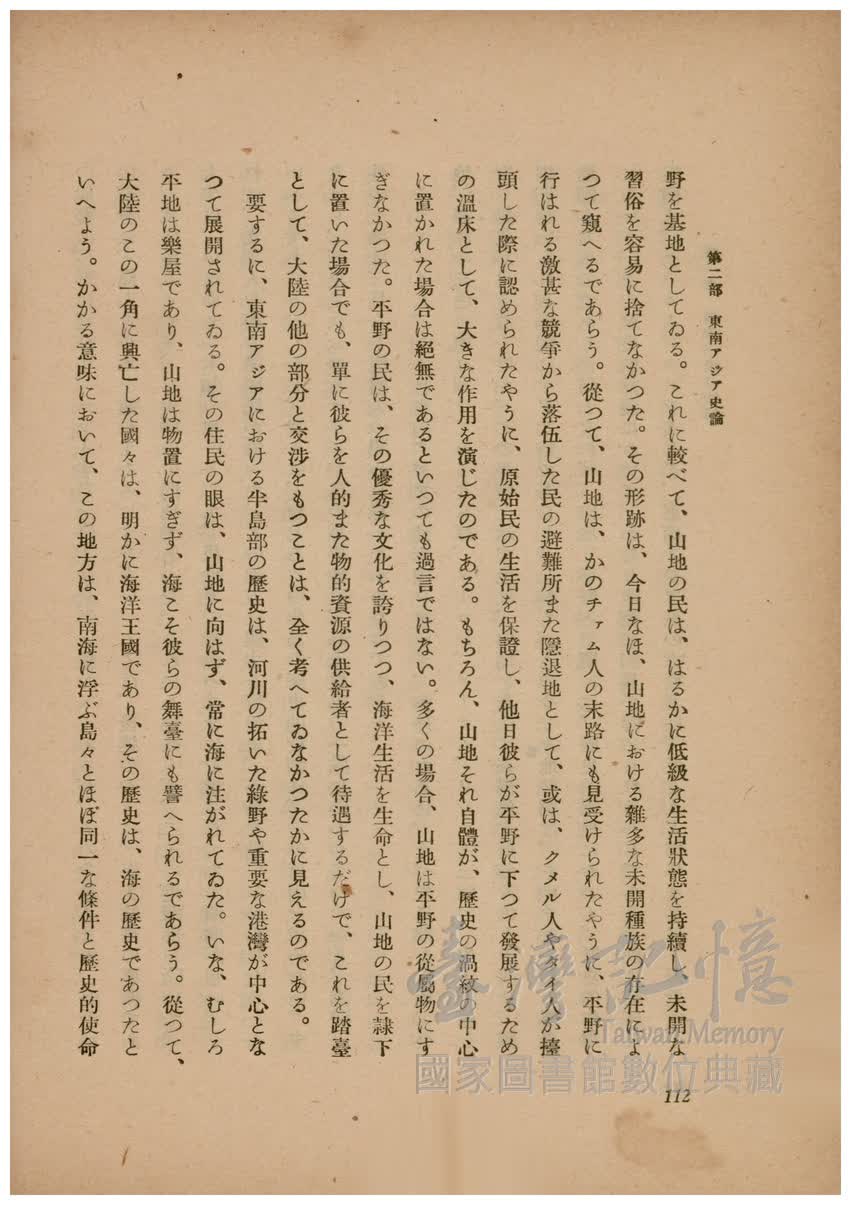 第二部　東南アジア史論
野を基地としてゐる。これに較べて、山地の民は、はるかに低級な生活狀態を持續し、未開な
習俗を容易に捨てなかつた。その形跡は、今日なほ、山地における雜多な未開種族の存在によ
つて窺へるであらう。從つて、山地は、かのチァム人の末路にも見受けられたやうに、平野に
行はれる激甚な競爭から落伍した民の避難所また隱退地として、或は、クメル人やタイ人が擡
頭した際に認められたやうに、原始民の生活を保證し、他日彼らが平野に下つて發展するため
の溫床として、大きな作用を演じたのである。もちろん、山地それ自體が、歷史の渦紋の中心
に置かれた場合は絕無であるといつても過言ではない。多くの場合、山地は平野の從屬物にす
ぎなかつた。平野の民は、その優秀な文化を誇りつつ、海洋生活を生命とし、山地の民を隷下
に置いた場合でも、單に彼らを人的また物的資源の供給者として待遇するだけで、これを踏臺
として、大陸の他の部分と交涉をもつことは、全く考へてゐなかつたかに見えるのである。
要するに、東南アジアにおける半島部の歷史は、河川の拓いた綠野や重要な港灣が中心とな
つて展開されてゐる。その住民の眼は、山地に向はず、常に海に注がれてゐた。いな、むしろ
平地は樂屋であり、山地は物置にすぎず、海こそ彼らの舞臺にも譬へられるであらう。從つて、
大陸のこの一角に興亡した國々は、明かに海洋王國であり、その歷史は、海の歷史であつたと
いへよう。かかる意味において、この地方は、南海に浮ぶ島々とほぼ同一な條件と歷史的使命
112
臺灣記憶
Taiwan Memory
國家圖書館數位典藏